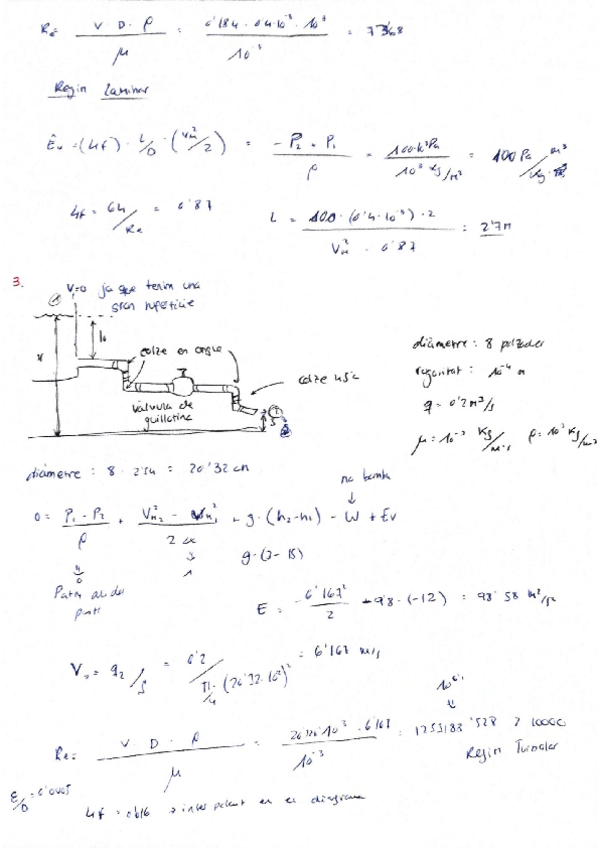 Re = V · D · ρ / μ = 0'184 · 0'4·10⁻³ · 10³ / 10⁻³ = 73'68
Regim laminar
Êv = (4f) · L/D · (Vm²/2) = -P₂ + P₁ / ρ = / 10³ kg/m³ = 100 Pa /
4f = 64/Re = 0'87
L = 100 · (0'4·10⁻³) · 2 / Vm² · 0'87 = 2'7m
3.
V=0 ja que tenim una
gran superficie
colze en angle
colze 45º
vàlvula de
guillotina
diàmetre : 8 polzades
rugositat : 10⁻⁴ m
q = 0'2 m³/s
μ = 10⁻³ kg/m·s ρ = 10³ kg/m³
diàmetre : 8 · 2'54 = 20'32 cm
no bomba
0 = P₁ - P₂ / ρ + Vm₂² - Vm₁² / 2α + g · (h₂-h₁) - W + Ev
g·(3-15)
E = -6'167² / 2 - 9'8 · (-12) = 98'58 m²/s²
V₂ = q₂/S = 0'2 / π/4 · (20'32·10⁻²)² = 6'167 m/s
Re = V · D · ρ / μ = / 10⁻³ = 1253183'528 > 10000
Regim Turbulent
ε/D = 0'0005
4f = 0'016 → interpolant en el diagrama